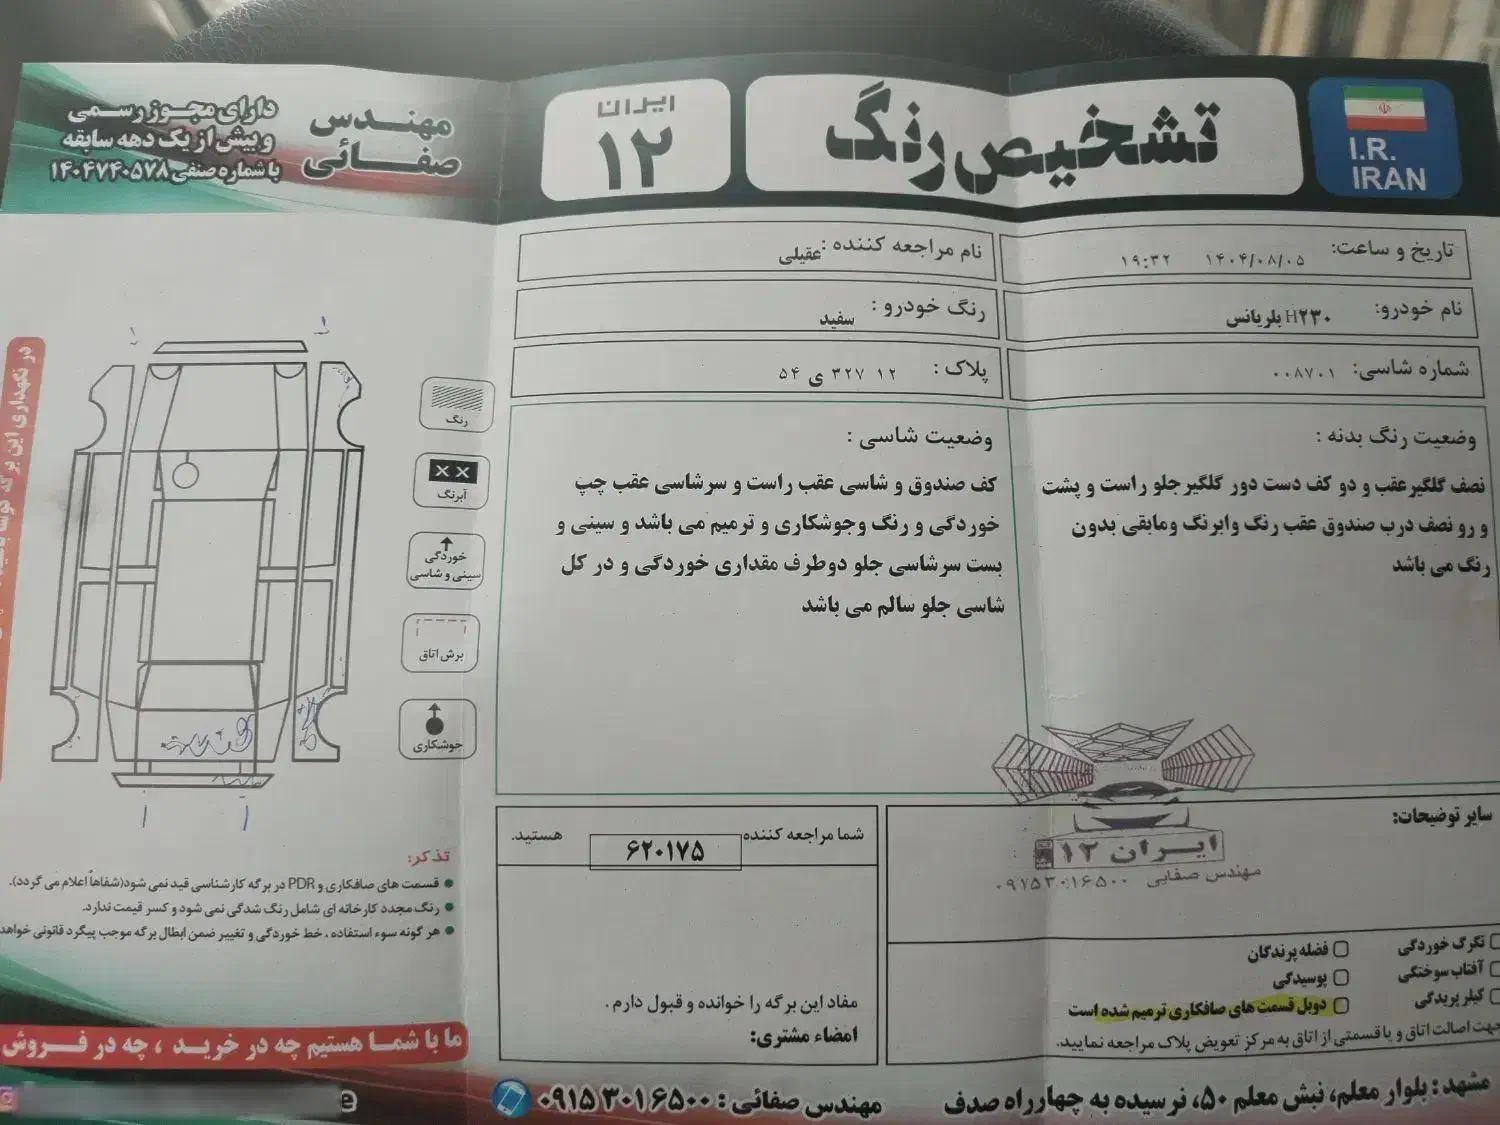 دارای مجوز رسمی
و بیش از یک دهه سابقه
با شماره صنفی ۱۴۰۴۷۴۰۵۷۸
مهندس
صفائی
ایران
۱۲
تشخیص رنگ
I.R.
IRAN
تاریخ و ساعت: ۱۴۰۴/۰۸/۰۵ ۱۹:۳۲
نام مراجعه کننده: عقیلی
نام خودرو: H۲۳۰ بلریانس
رنگ خودرو: سفید
شماره شاسی: ۰۰۸۷۰۱
پلاک: ۱۲ ۳۲۷ ی ۵۴
وضعیت رنگ بدنه :
نصف گلگیرعقب و دو کف دست دور گلگیرجلو راست و پشت
و رو نصف درب صندوق عقب رنگ وابرنگ ومابقی بدون
رنگ می باشد
وضعیت شاسی :
کف صندوق و شاسی عقب راست و سرشاسی عقب چپ
خوردگی و رنگ وجوشکاری و ترمیم می باشد و سینی و
بست سرشاسی جلو دوطرف مقداری خوردگی و در کل
شاسی جلو سالم می باشد
رنگ
XX
آبرنگ
خوردگی
سینی و شاسی
برش اتاق
جوشکاری
در نگهداری این برگه
تذکر:
● قسمت های صافکاری و PDR در برگه کارشناسی قید نمی شود(شفاهاً اعلام می گردد).
● رنگ مجدد کارخانه ای شامل رنگ شدگی نمی شود و کسر قیمت ندارد.
● هر گونه سوء استفاده ، خط خوردگی و تغییر ضمن ابطال برگه موجب پیگرد قانونی خواهد
ما با شما هستیم چه در خرید ، چه در فروش
شما مراجعه کننده ۶۲۰۱۷۵ هستید.
مفاد این برگه را خوانده و قبول دارم .
امضاء مشتری:
سایر توضیحات:
ایران ۱۲
مهندس صفایی
۰۹۱۵۳۰۱۶۵۰۰
تگرگ خوردگی
فضله پرندگان
آفتاب سوختگی
پوسیدگی
کیلر پریدگی
دوبل قسمت های صافکاری ترمیم شده است
جهت اصالت اتاق و یا قسمتی از اتاق به مرکز تعویض پلاک مراجعه نمایید.
مشهد : بلوار معلم، نبش معلم ۵۰، نرسیده به چهارراه صدف
مهندس صفائی : ۰۹۱۵۳۰۱۶۵۰۰